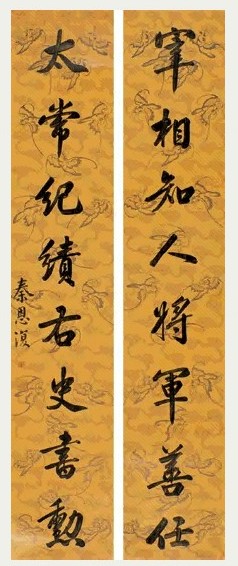 宰相知人将軍善任
太常紀績右史書勲
秦恩復